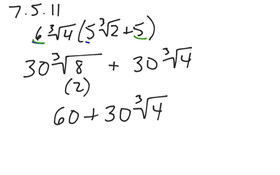 7.5.11
6∛4(5∛2+5)
30∛8 + 30∛4
(2)
60+30∛4